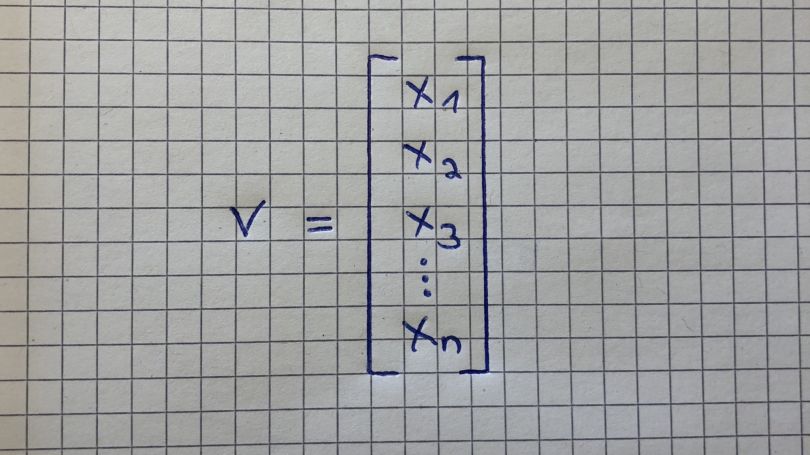 V = [
x₁
x₂
x₃
⋮
xₙ
]